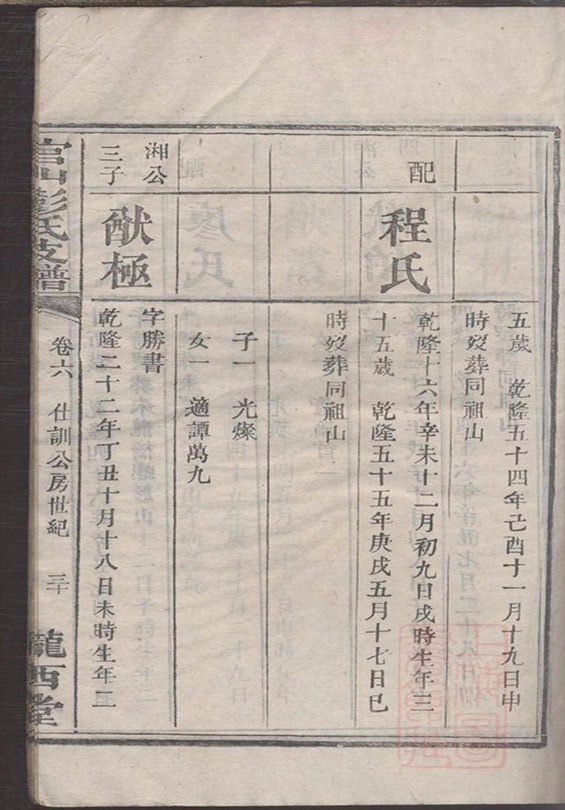 五歲　乾隆五十四年己酉十一月十九日申
時歿葬同祖山
配
程氏
乾隆十六年辛未十二月初九日戌時生年三
十五歲　乾隆五十五年庚戌五月十七日巳
時歿葬同祖山
子一　光燦
女一　適譚萬九
湘公
三子
猷極
字勝書
乾隆二十二年丁丑十月十八日未時生年二
官山彭氏支譜
卷六　仕訓公房世紀　三十
隴西堂